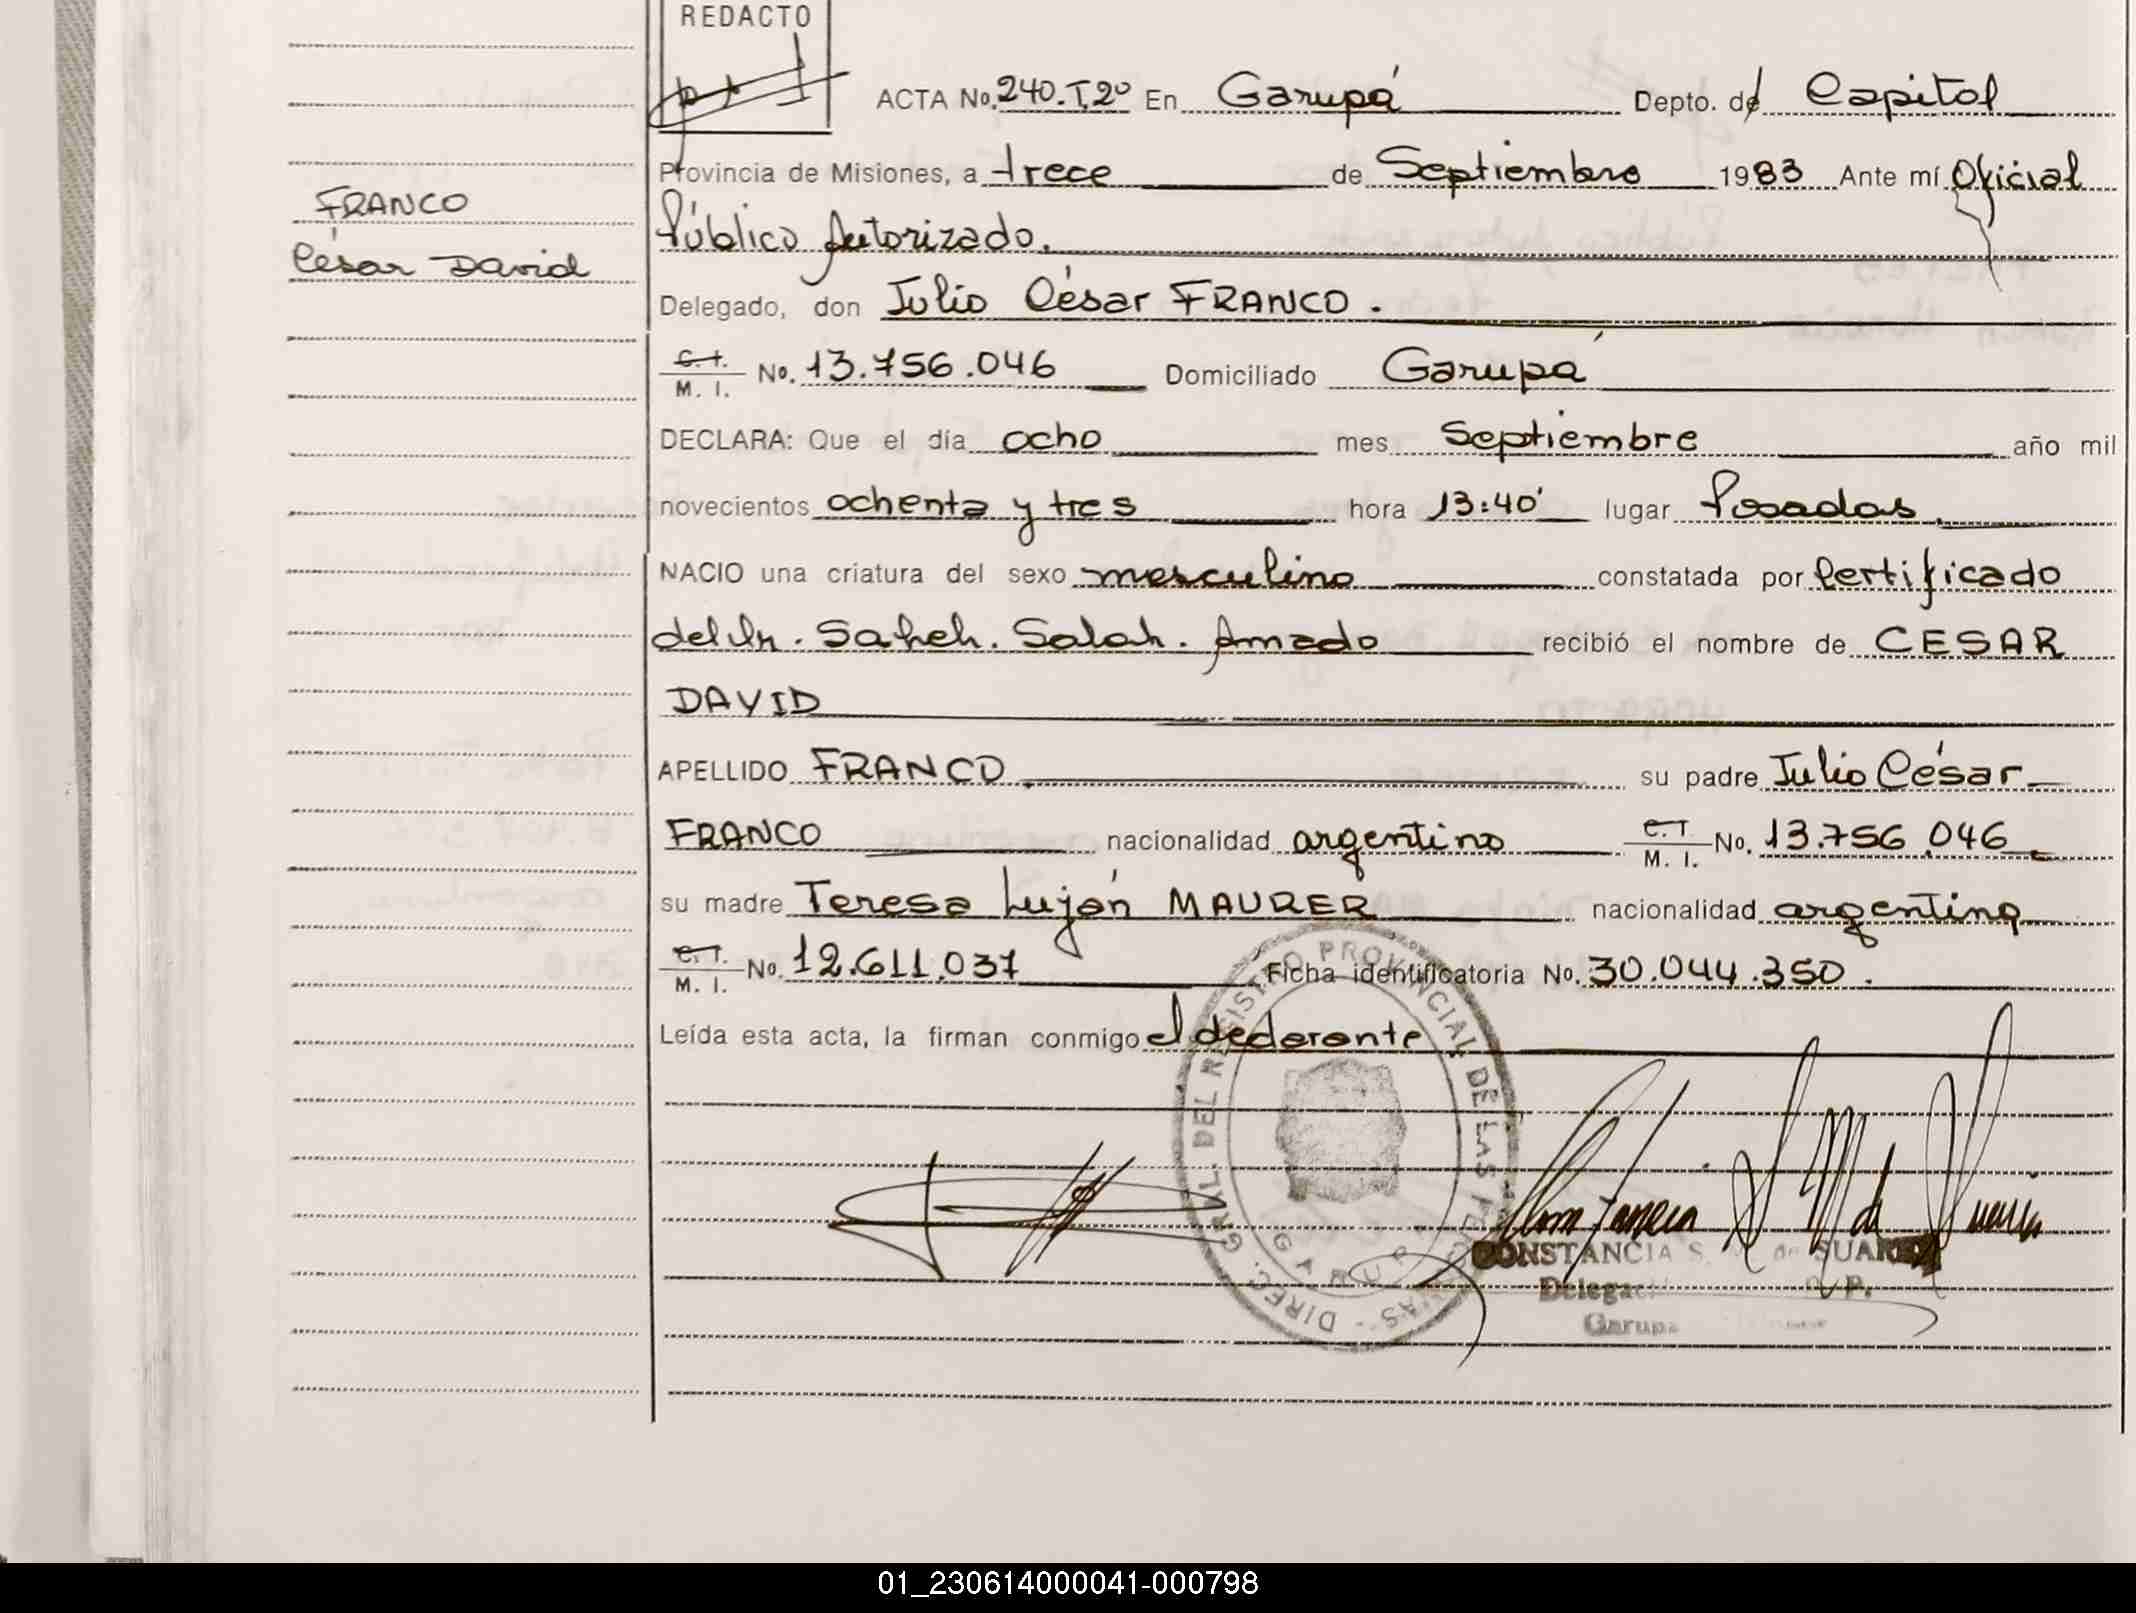 REDACTO
ACTA No. 240.T.2º En Garupá Depto. de Capital
Provincia de Misiones, a trece de Septiembre 1983 Ante mí Oficial
FRANCO
César David
Público Autorizado.
Delegado, don Julio César FRANCO.
C.I. M. I. No. 13.756.046 Domiciliado Garupá
DECLARA: Que el día ocho mes Septiembre año mil
novecientos ochenta y tres hora 13:40' lugar Posadas.
NACIO una criatura del sexo masculino constatada por Certificado
del Dr. Saheh. Salah. Amado recibió el nombre de CESAR
DAVID
APELLIDO FRANCO. su padre Julio César
FRANCO nacionalidad argentino C.I. M. I. No. 13.756.046
su madre Teresa Luján MAURER nacionalidad argentina
C.I. M. I. No. 12.611.037 Ficha identificatoria No. 30.044.350.
Leída esta acta, la firman conmigo el declarante
DIREC. GRAL. DEL REGISTRO PROVINCIAL DE LAS PERSONAS
GARUPA
CONSTANCIA S. de SUAREZ
Garupá
01_230614000041-000798